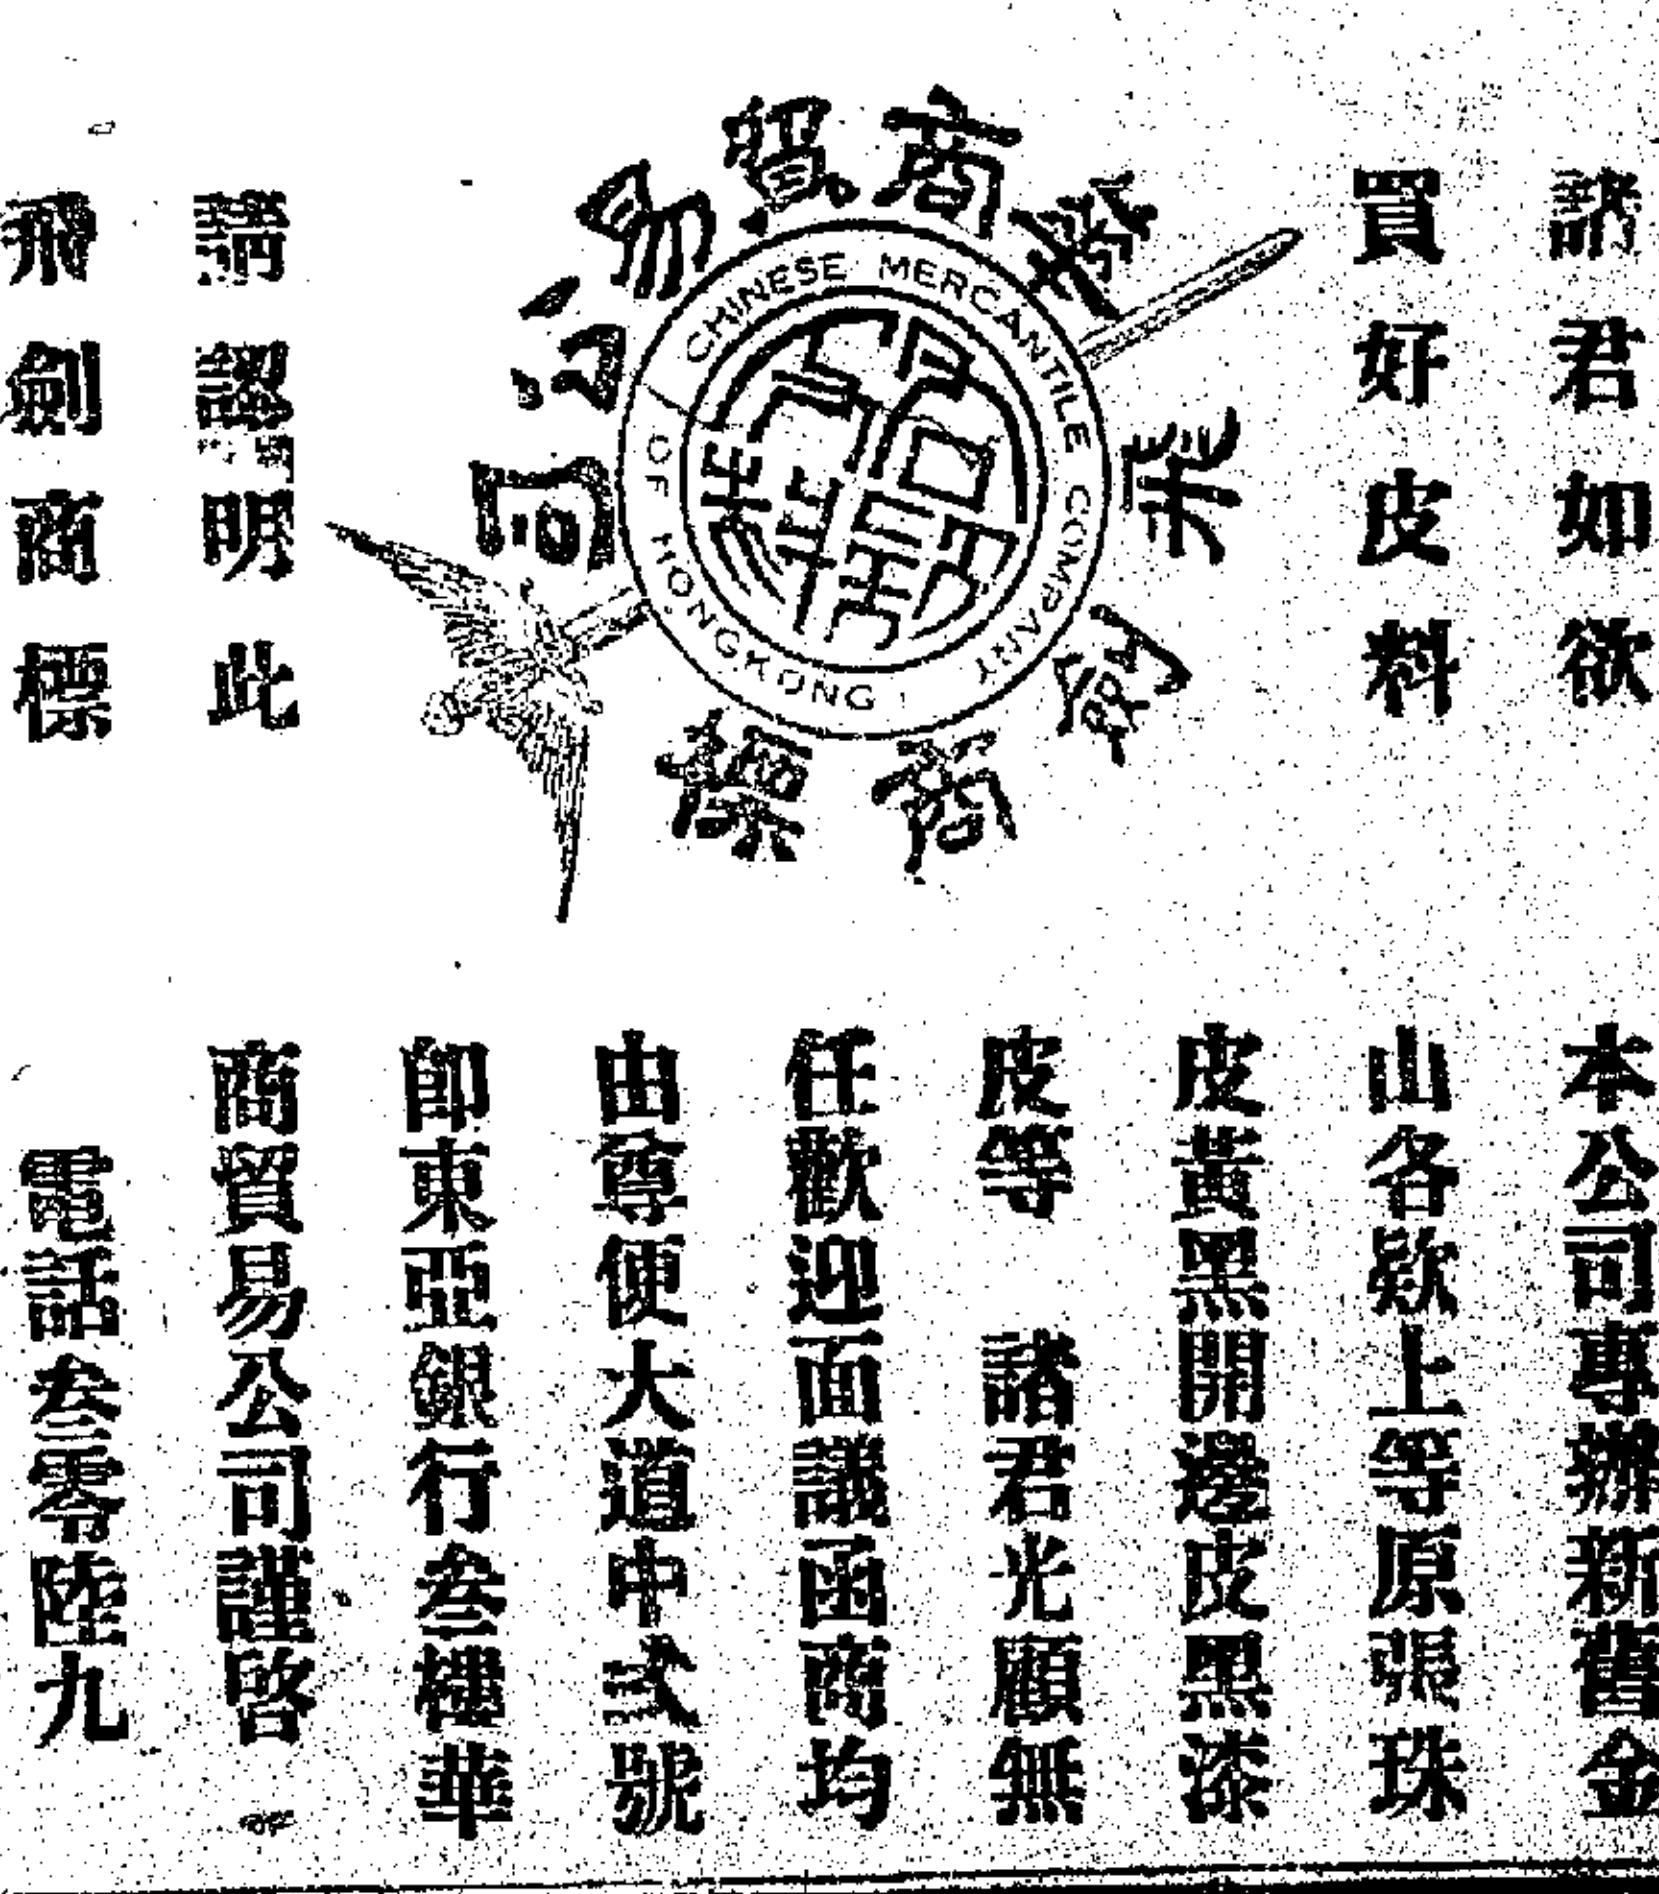 諸君如欲
買好皮料
華商貿易公司
飛劍商標
CHINESE MERCANTILE COMPANY
OF HONGKONG
請認明此
飛劍商標
本公司專辦新舊金
山各欵上等原張珠
皮黃黑開邊皮黑漆
皮等 諸君光顧無
任歡迎面議函商均
由尊便大道中弍號
即東亞銀行叁樓華
商貿易公司謹啓
電話叁零陸九